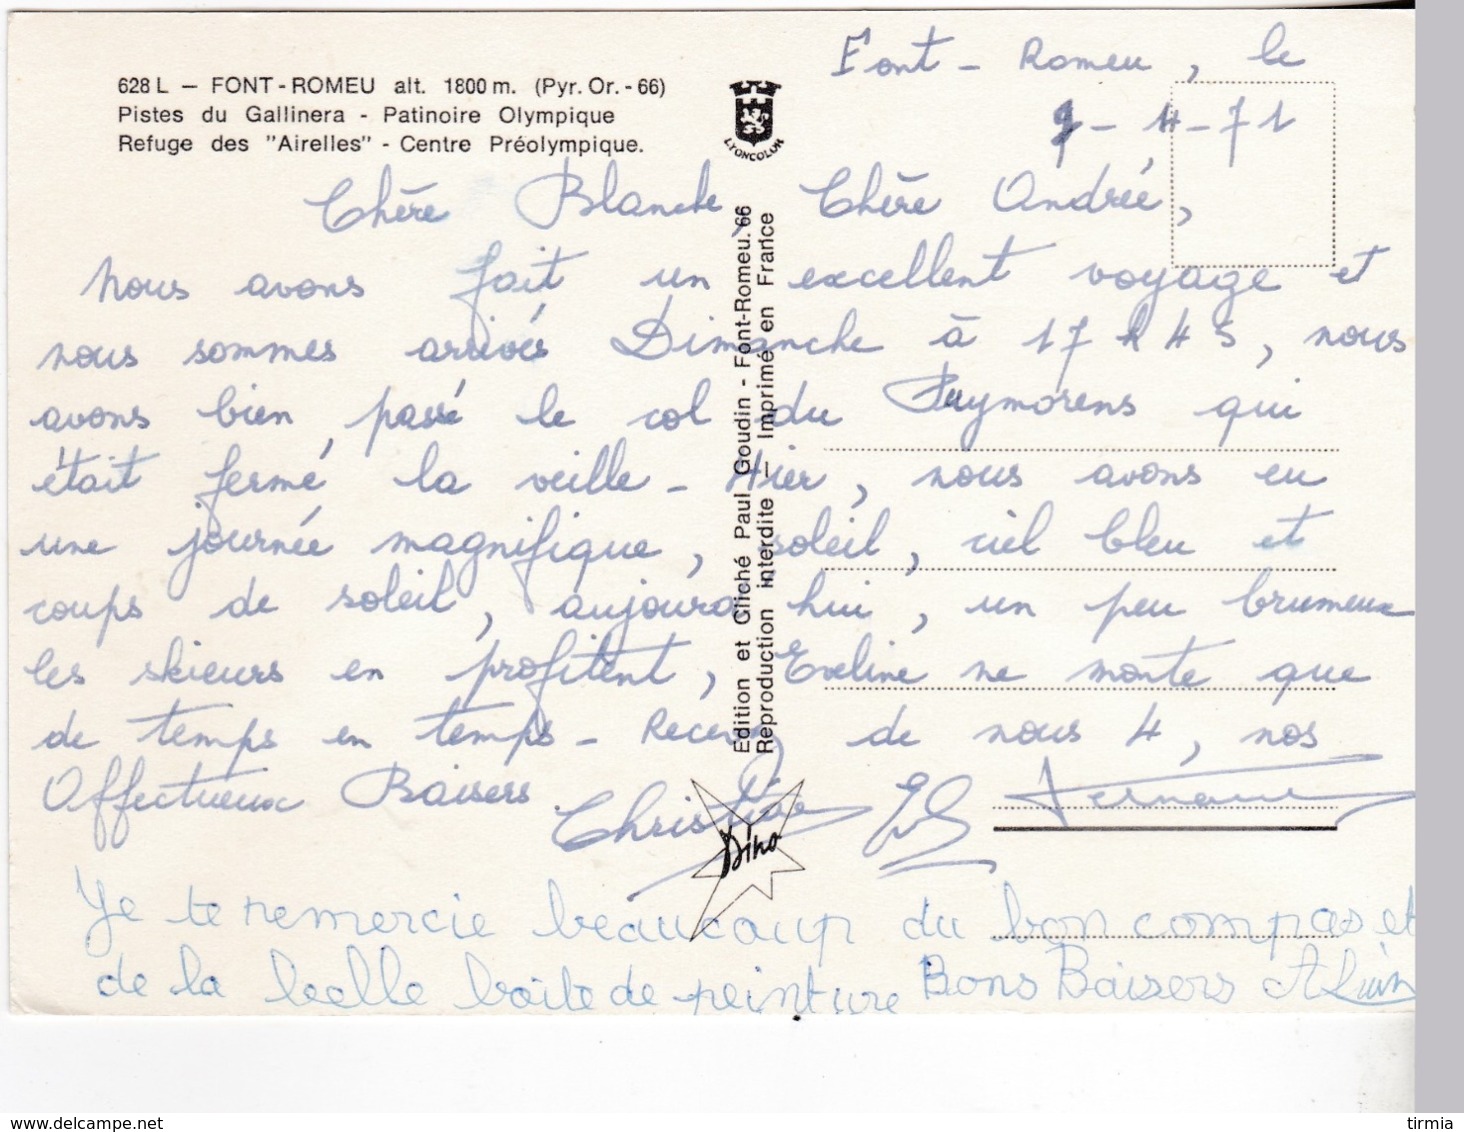 628 L – FONT-ROMEU alt. 1800 m. (Pyr. Or. - 66)
Pistes du Gallinera - Patinoire Olympique
Refuge des "Airelles" - Centre Préolympique.
LYONCOLOR
Font-Romeu, le
-4-71
Chère Blanche, Chère Andrée,
Nous avons fait un excellent voyage et
nous sommes arrivés Dimanche à 17 h 45, nous
avons bien passé le col du Puymorens qui
était fermé la veille - Hier, nous avons eu
une journée magnifique, soleil, ciel bleu et
coups de soleil, aujourd'hui, un peu brumeux
les skieurs en profitent, Eveline ne monte que
de temps en temps - Recevez de nous 4, nos
Affectueux Baisers
Christiane
Dino
Je te remercie beaucoup du bon compas et
de la belle boite de peinture Bons Baisers
Edition et Cliché Paul Goudin - Font-Romeu. 66
Reproduction interdite — Imprimé en France
delcampe.net
tirmia